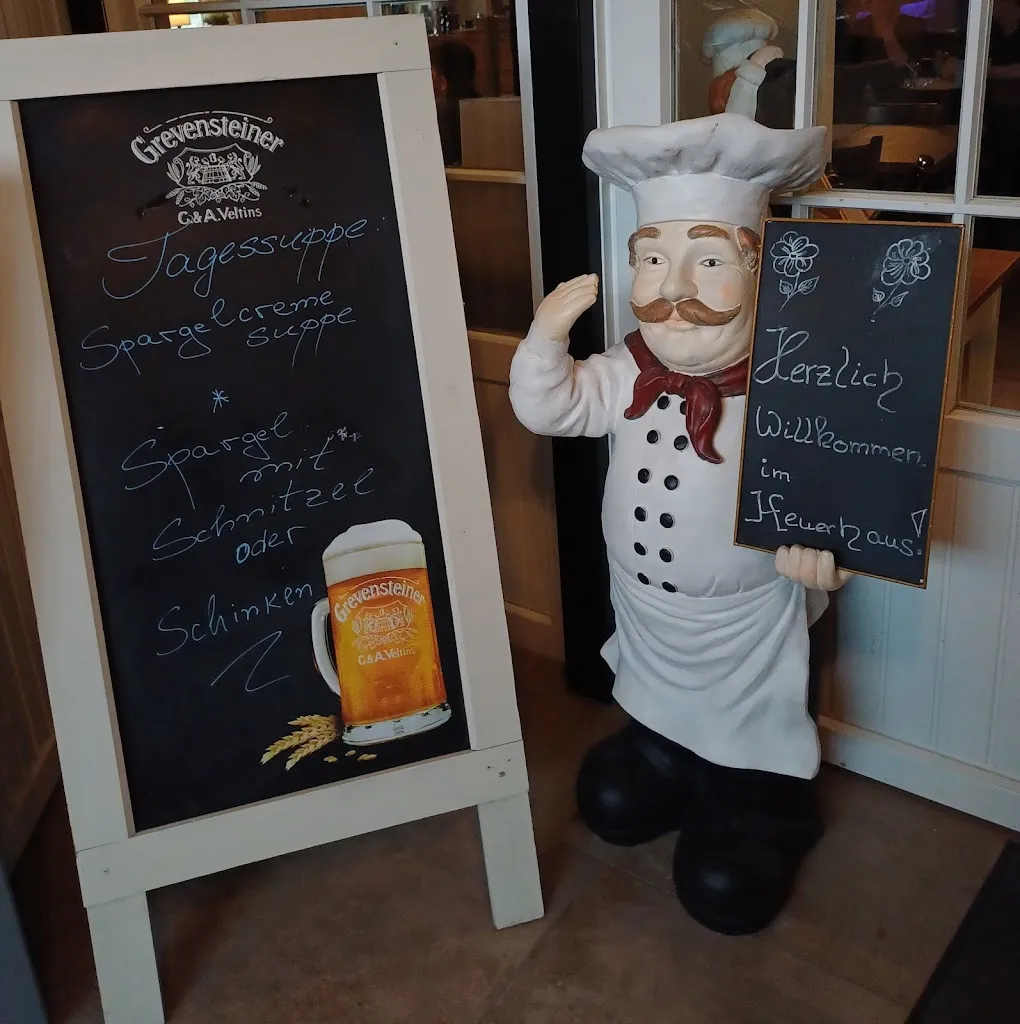 Grevensteiner
C.&A.Veltins
Tagessuppe:
Spargelcreme
suppe
*
Spargel
mit
Schnitzel
oder
Schinken
Grevensteiner
C.&A.Veltins
Herzlich
Willkommen
im
Heuerhaus!